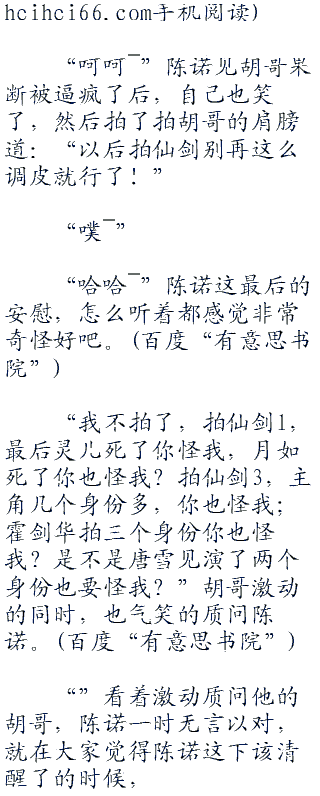 hcihci66.com手机阅读)
“呵呵‾”陈诺见胡哥果
断被逼疯了后，自己也笑
了，然后拍了拍胡哥的肩膀
道：“以后拍仙剑别再这么
调皮就行了！”
“噗‾”
“哈哈‾”陈诺这最后的
安慰，怎么听着都感觉非常
奇怪好吧。(百度“有意思书
院”)
“我不拍了，拍仙剑1，
最后灵儿死了你怪我，月如
死了你也怪我？拍仙剑3，主
角几个身份多，你也怪我；
霍剑华拍三个身份你也怪
我？是不是唐雪见演了两个
身份也要怪我？”胡哥激动
的同时，也气笑的质问陈
诺。(百度“有意思书院”)
“”看着激动质问他的
胡哥，陈诺一时无言以对，
就在大家觉得陈诺这下该清
醒了的时候，